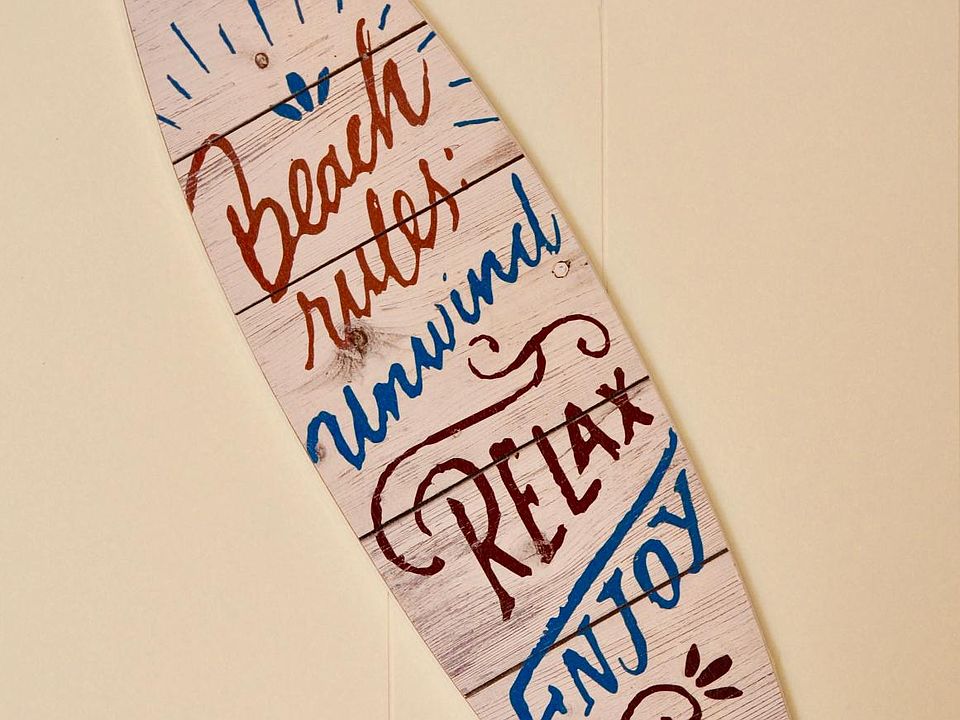 Beach
rules:
unwind
RELAX
ENJOY